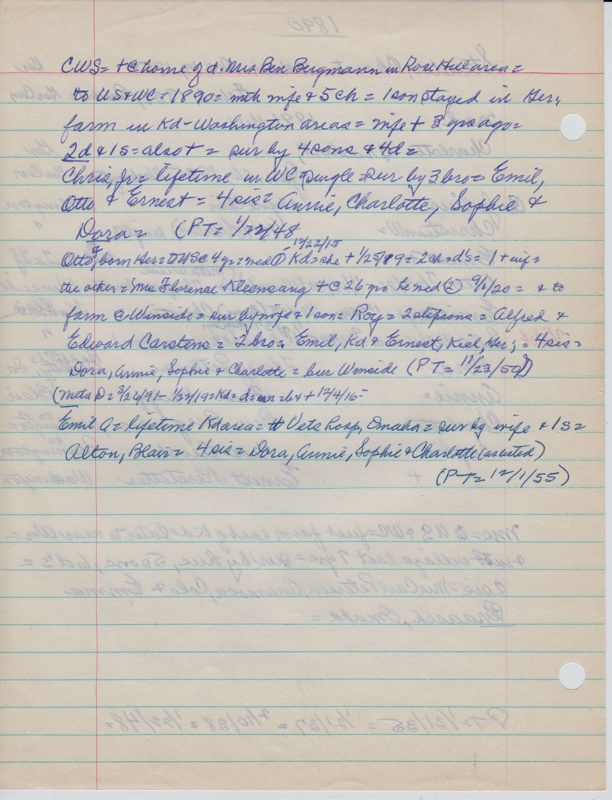 CWS = + @ home of d. Mrs Ben Bergmann in Rose Hill area =
to US & WC = 1890 = with wife & 5 ch = 1 son stayed in Ger,
farm in Kd - Washington areas = wife + 3 yrs ago =
2d & 1s = also + = sur by 4 sons & 4d =
Chris, Jr = lifetime in WC = single = sur by 3 bro = Emil,
Otto & Ernest = 4 sis = Annie, Charlotte, Sophie &
Dora = (PT = 1/22/48
Otto, born Ger = to US @ 4 yr = med ① Kd = she + 1/25/89 = 2 ch = d's = 1 + inf =
12/22/15
the other = Mrs Florence Kleensang + @ 26 yr = he med ② 9/1/20 = & to
farm @ Winside = sur by wife & 1 son = Roy = 2 stepsons = Alfred &
Edward Carstens = 2 bro = Emil, Kd & Ernest, Kiel, Ger; = 4 sis =
Dora, Annie, Sophie & Charlotte = bur Winside (PT = 11/23/50)
(Meta D = 3/24/91 - 1/27/19 = Kd = + 12/4/16 -
Emil A = lifetime Kd area = + Vets hosp, Omaha = sur by wife & 1s =
Alton, Blair = 4 sis = Dora, Annie, Sophie & Charlotte (as listed)
(PT = 12/1/55)